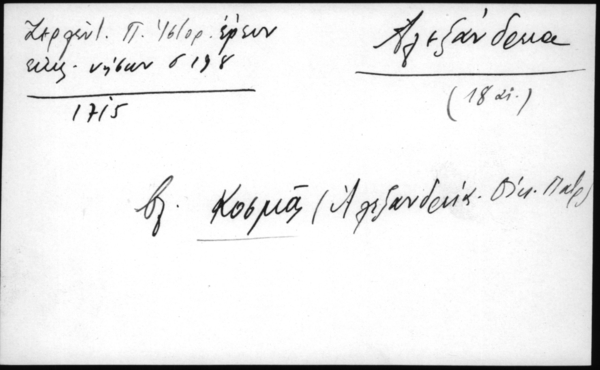 Ζερλέντ. Π. Ἱστορ. ἔρευν
εκκ. νήσων σ 198
1715
Ἀλεξάνδρεια
(18 αἰ.)
βλ. Κοσμᾶς (Ἀλεξανδρείας. Οἰκ. Πατρ)